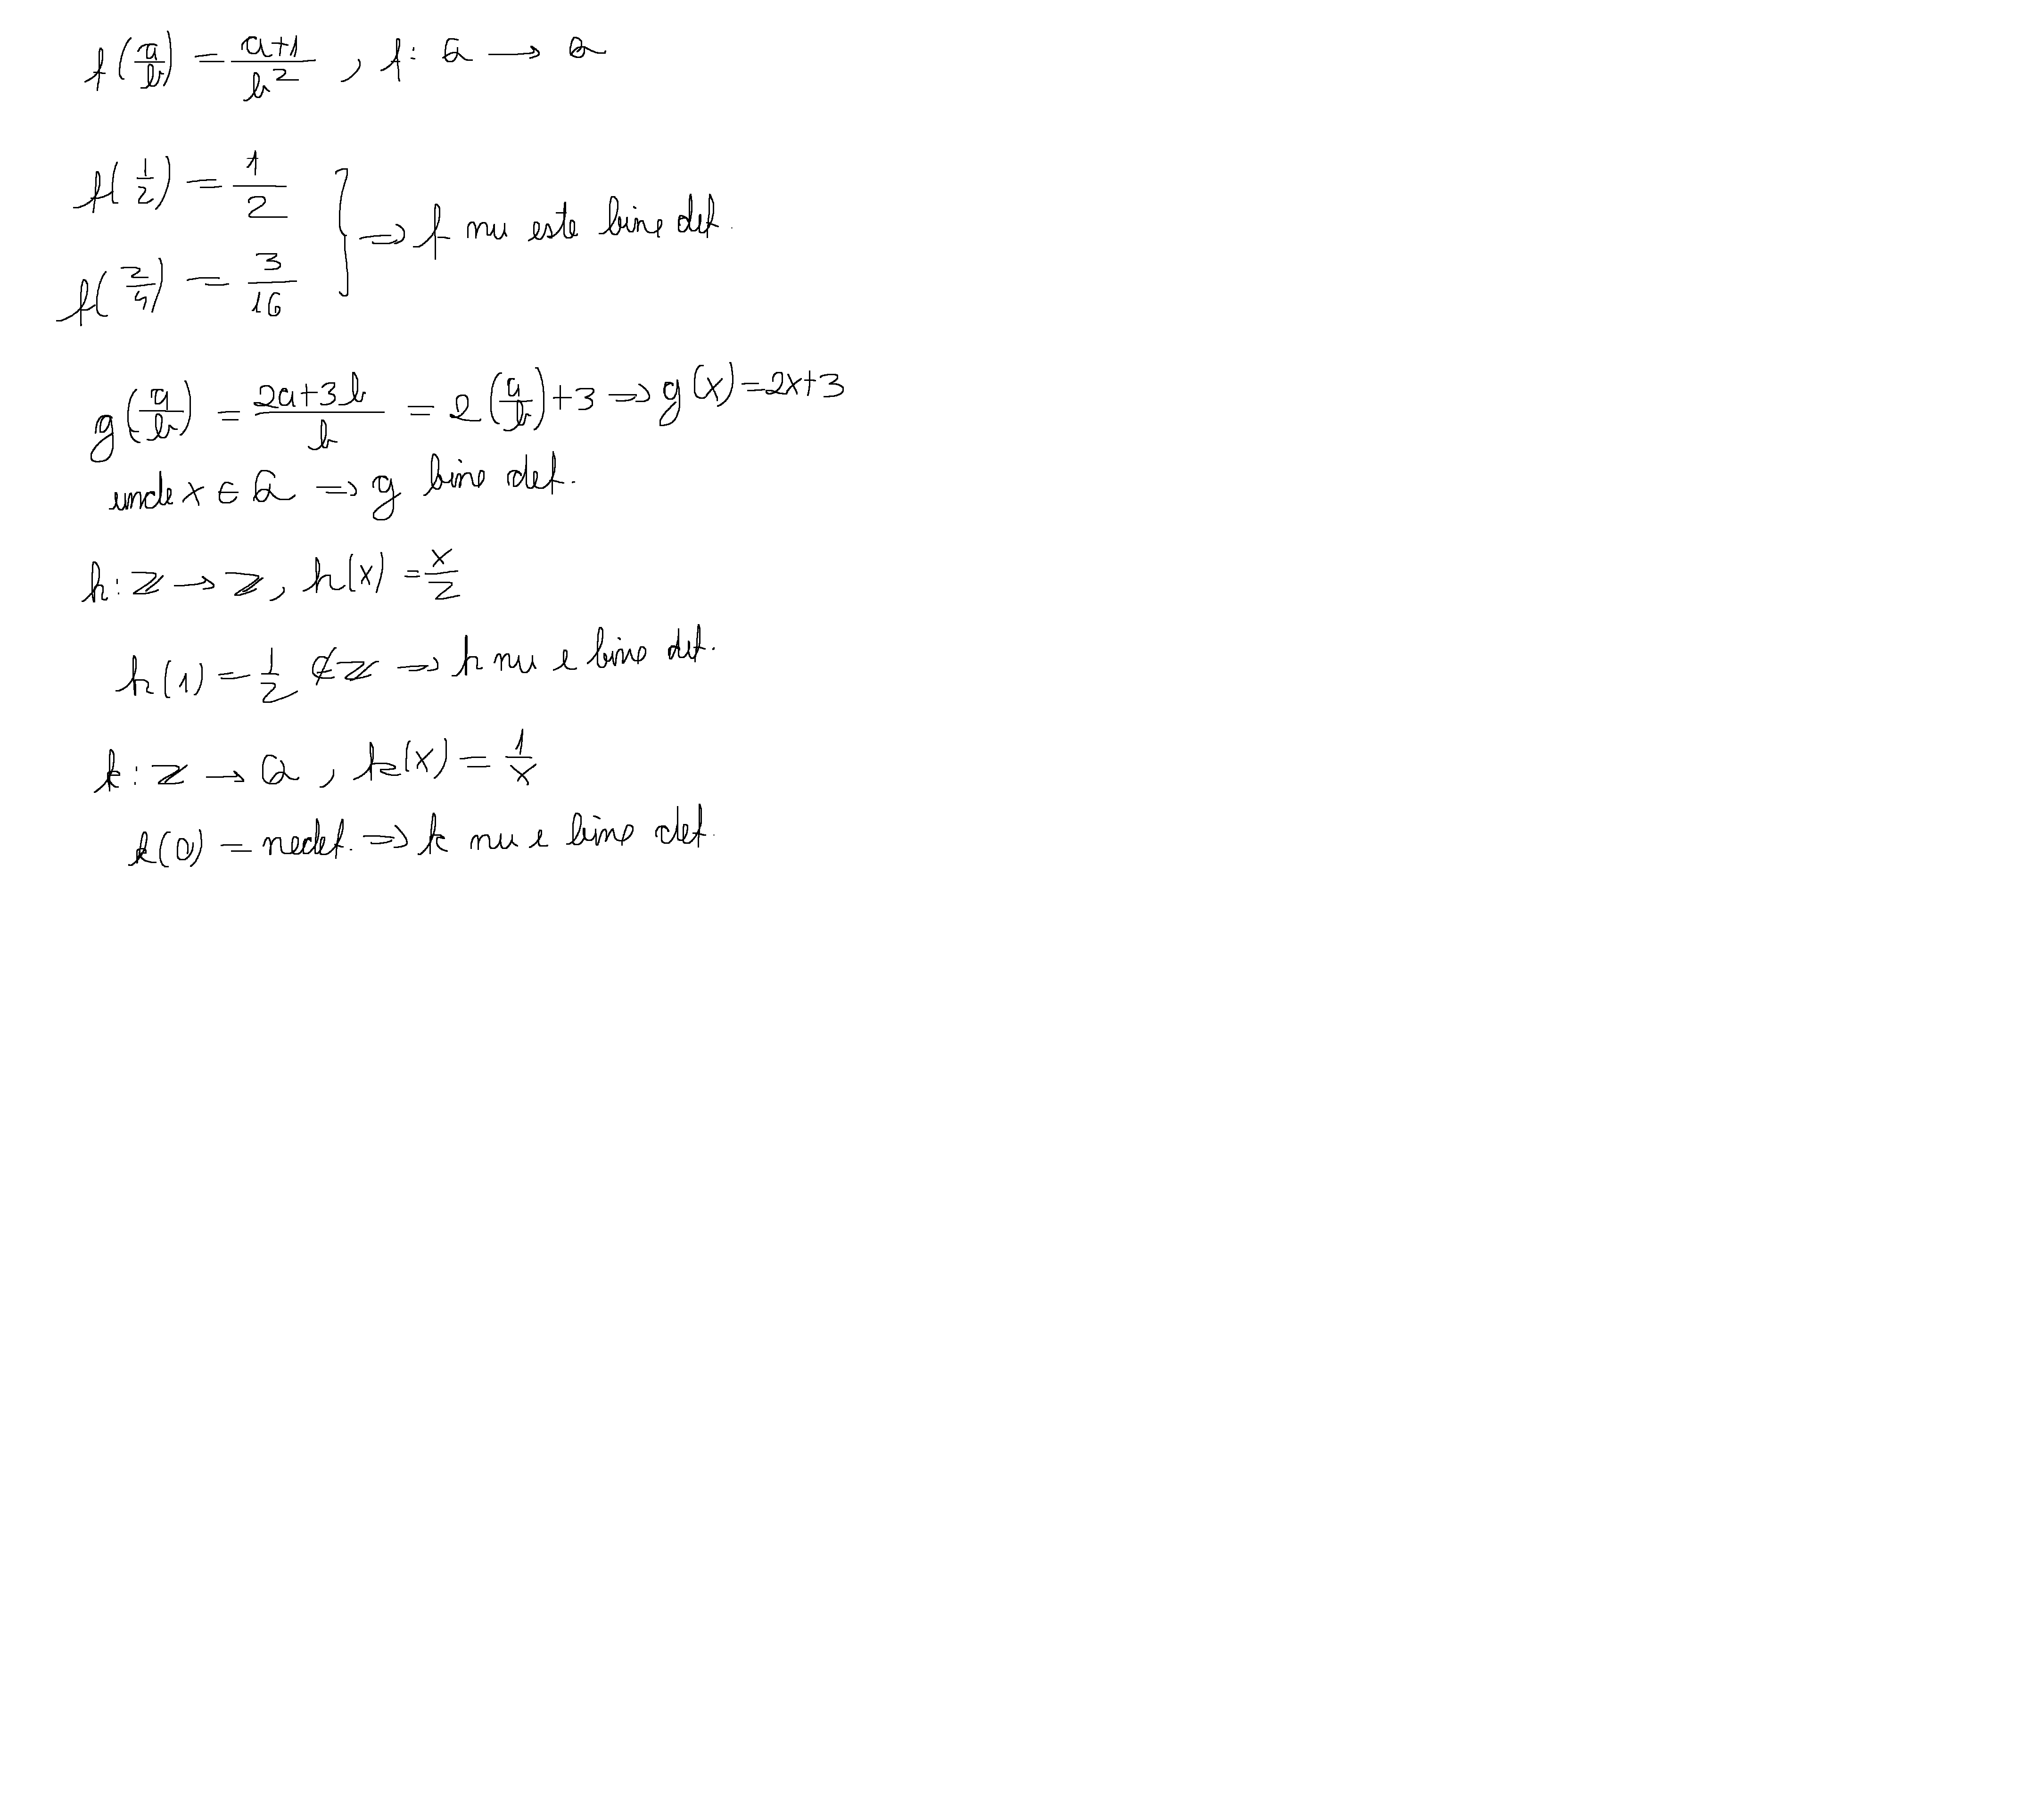 f(a/b) = (a+1)/b², f: Q → Q
f(1/2) = 1/2
} ⇒ f nu este bine def.
f(2/4) = 3/16
g(a/b) = (2a+3b)/b = 2(a/b)+3 ⇒ g(x)=2x+3
unde x ∈ Q ⇒ g bine def.
h: Z → Z, h(x) = x/2
h(1) = 1/2 ∉ Z ⇒ h nu e bine def.
k: Z → Q, k(x) = 1/x
k(0) = nedef. ⇒ k nu e bine def.